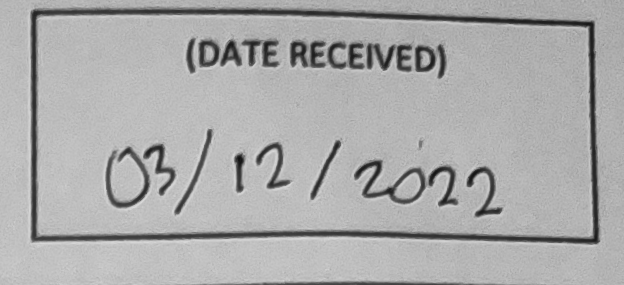 (DATE RECEIVED)
03/12/2022